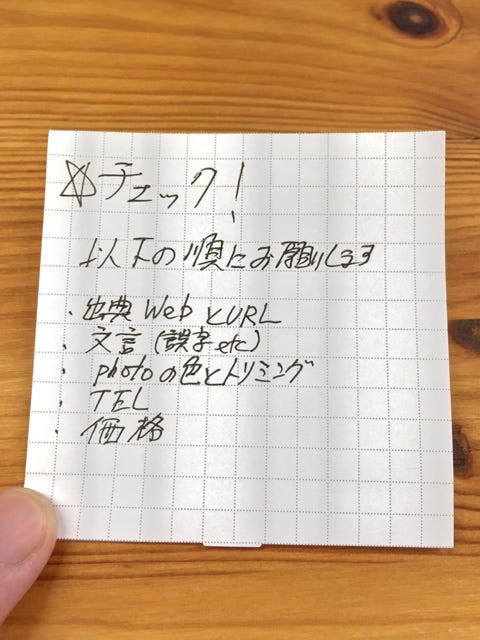 ☆チェック!
以下の順にお願いします
・出典WebとURL
・文言(誤字etc)
・photoの色とトリミング
・TEL
・価格